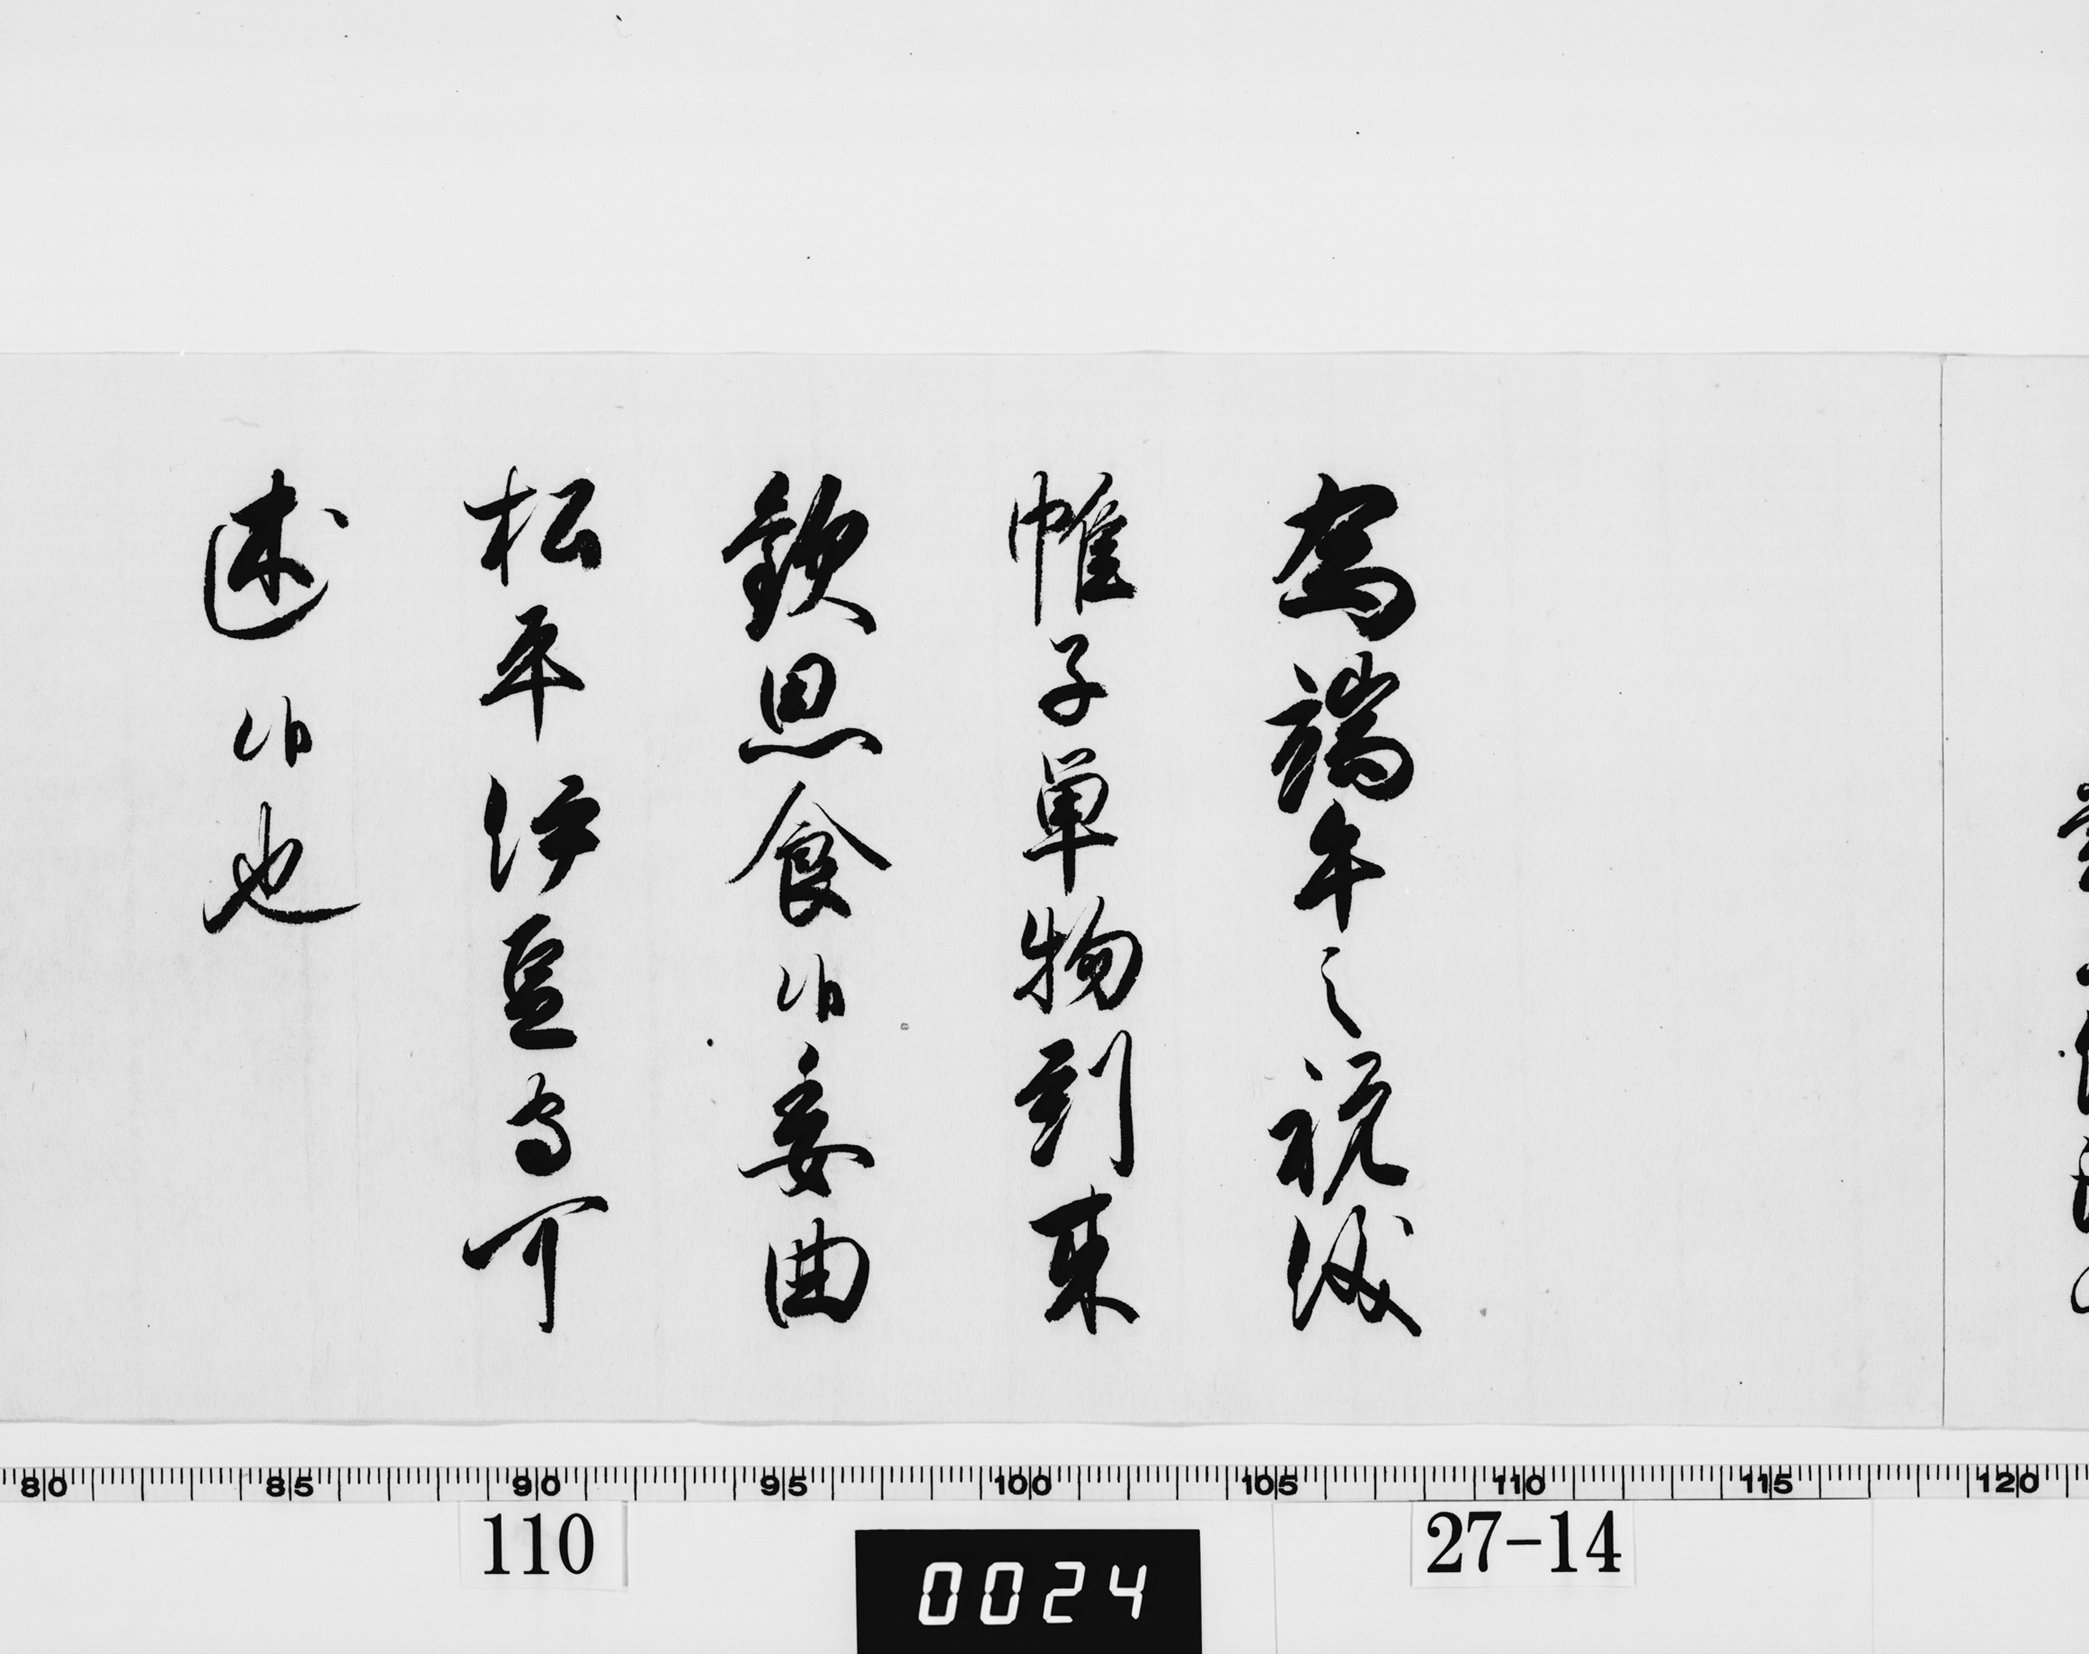 為端午之祝儀
帷子単物到来
歓思食候委曲
松平伊豆守可
述候也
80 85 90 95 100 105 110 115 120
110
0024
27-14